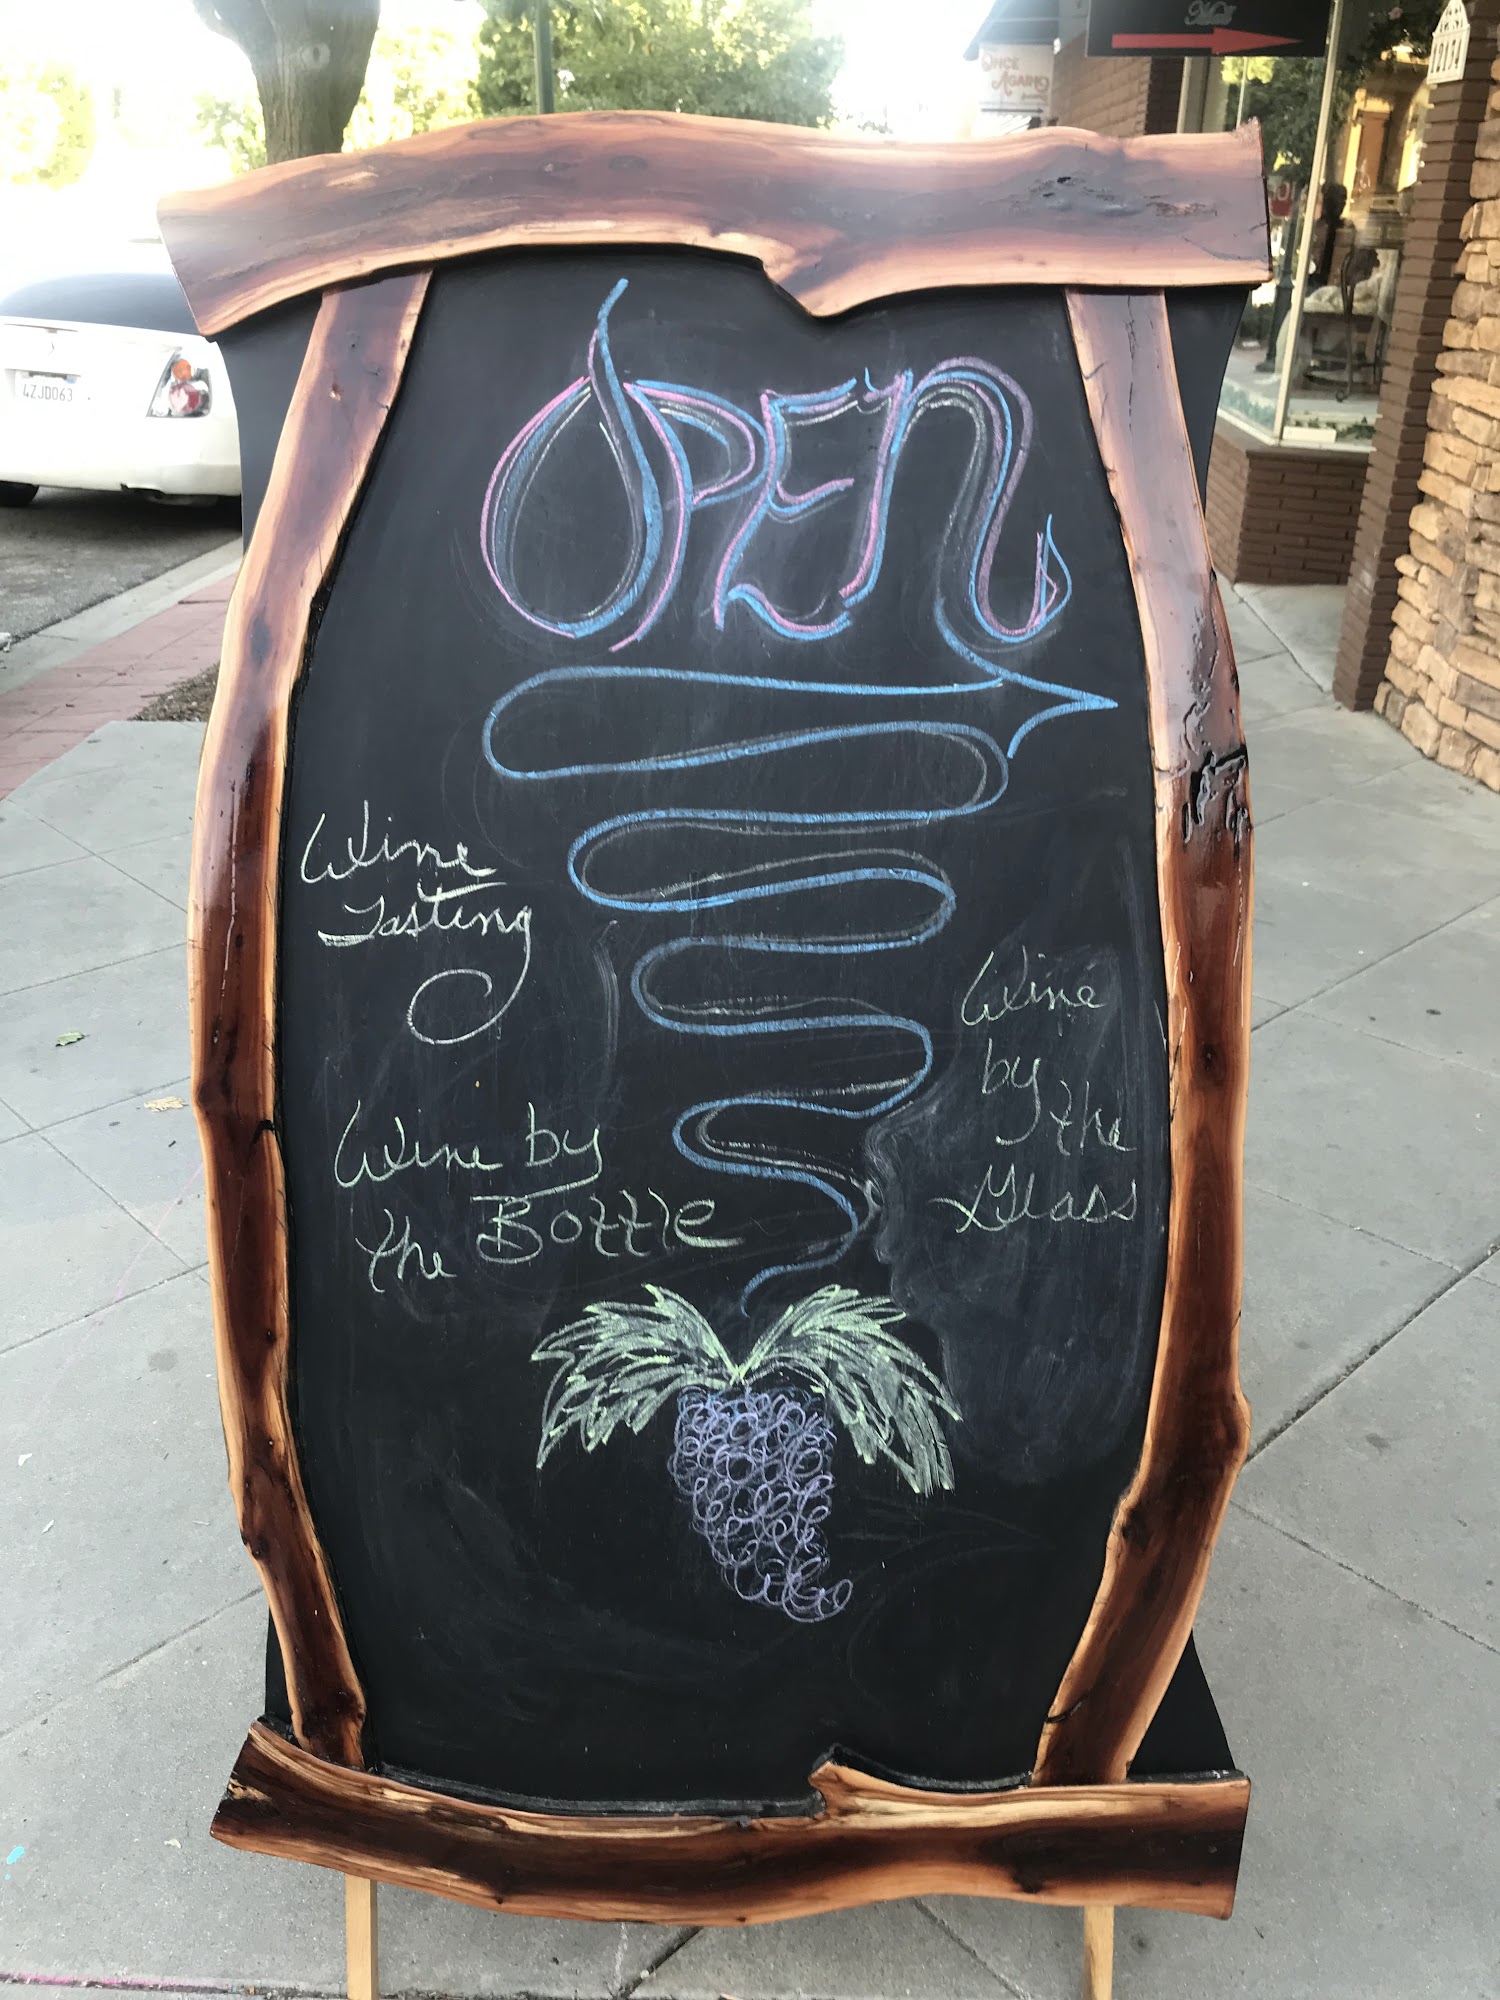 Mall
ONCE
AGAIN
2154
4ZJD063
OPEN
Wine
Tasting
Wine by
the Bottle
Wine
by
the
Glass